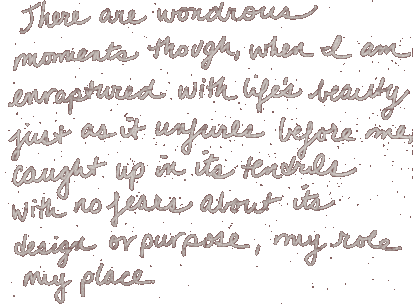 There are wondrous
moments though, when I am
enraptured with life's beauty
just as it unfurls before me,
caught up in its tendrils
with no fears about its
design or purpose, my role
my place